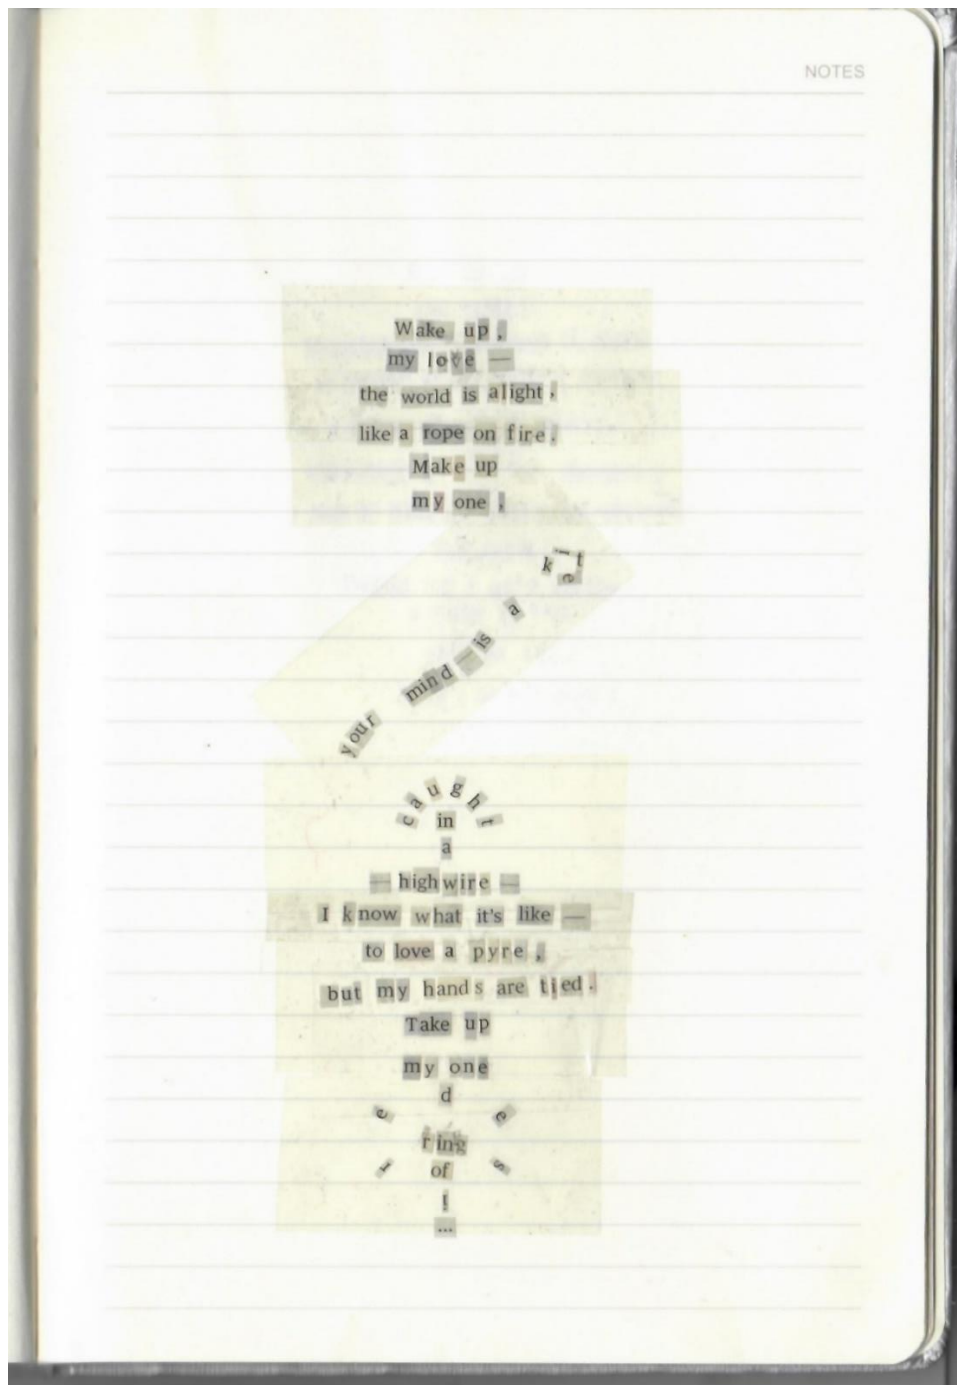 NOTES
Wake up,
my love —
the world is alight,
like a rope on fire.
Make up
my one,
your mind — is a kite
caught
in
a
— highwire —
I know what it's like —
to love a pyre,
but my hands are tied.
Take up
my one
desire
ring
of
...